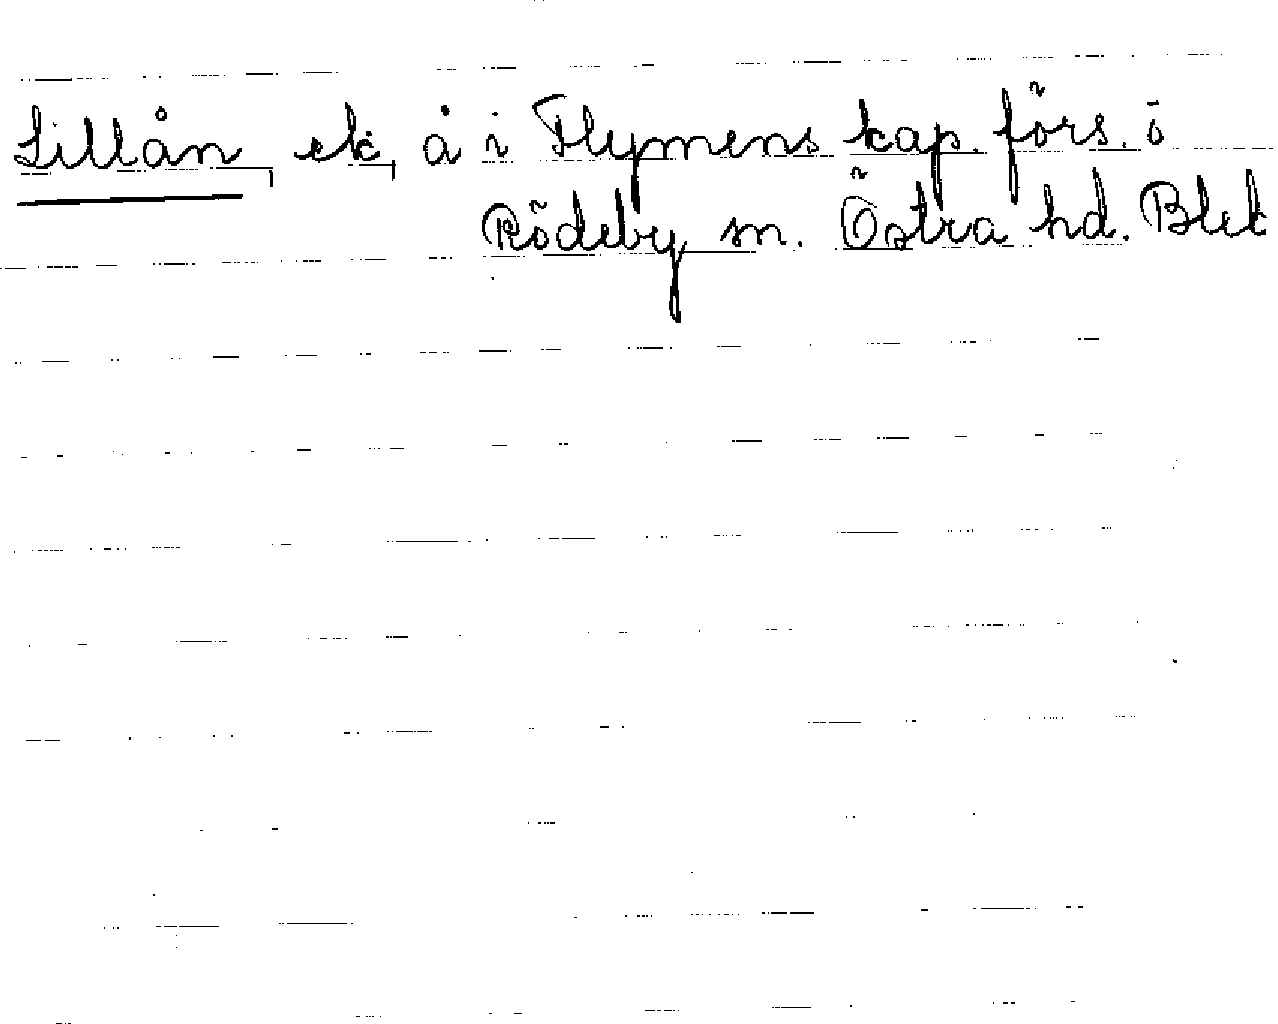 Lillån, ek, å i Flymens kap. förs. i
Rödeby sn. Östra hd. Blek